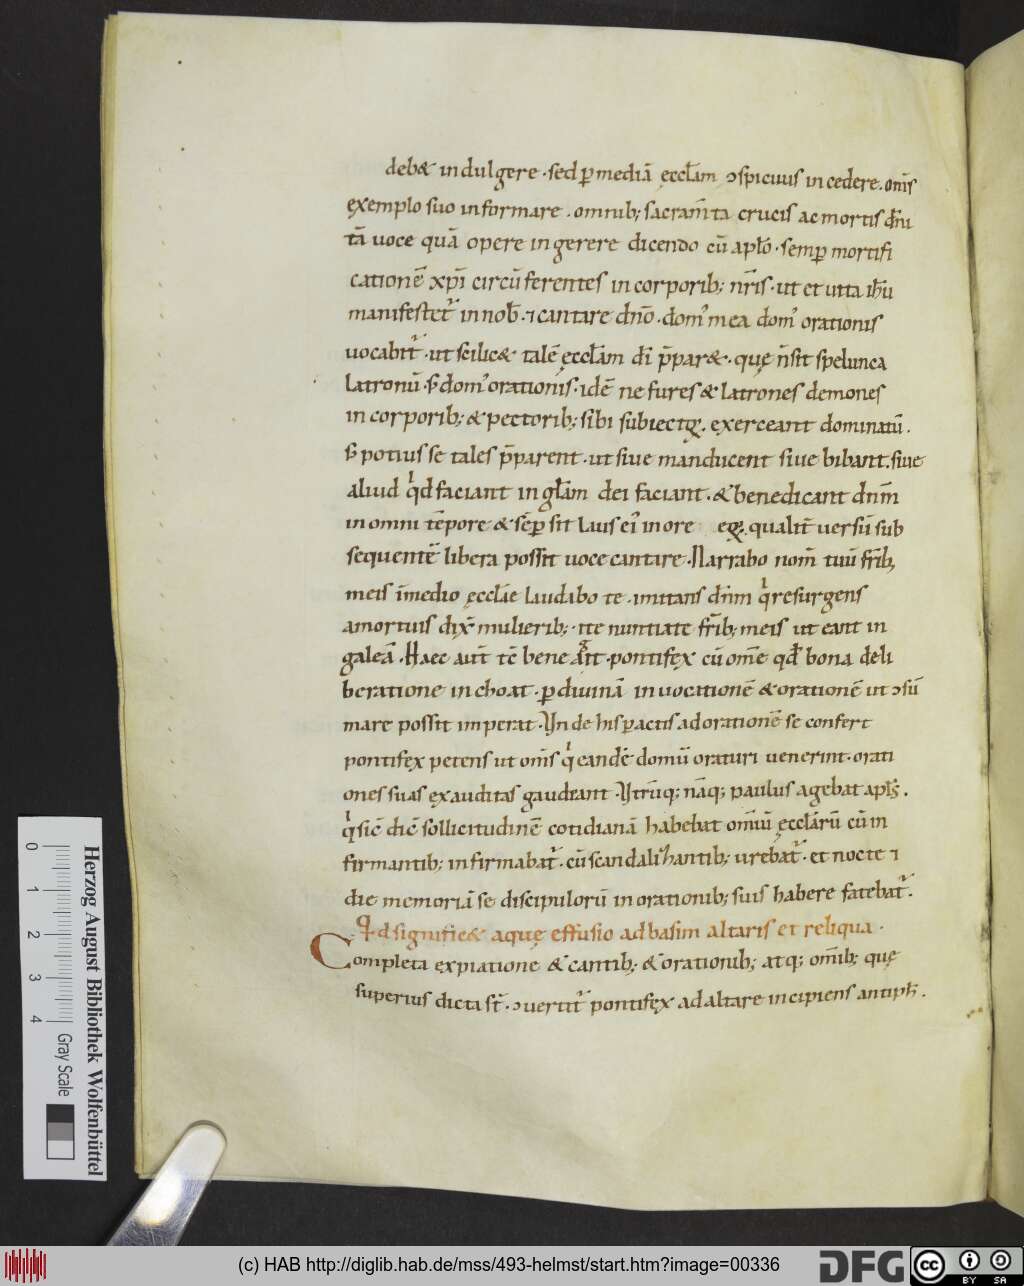 deb& indulgere · sed ꝑ mediā ęccłam ɔspicuus incedere · om̄s
exemplo suo informare · omnib; sacram̄ta crucis ac mortis dn̄i
tā uoce quā opere ingerere dicendo cū apło · semꝑ mortifi
cationē xp̄i circū ferentes in corporib; nr̄is · ut et uita ih̄u
manifestet᷑ in nob̄ · ⁊ cantare dn̄o · dom᷒ mea dom᷒ orationis
uocabit᷑ · ut scilic& talē ęccłam dī p̄par& · quę n̄ sit spelunca
latronū · s; dom᷒ orationis · idē ne fures & latrones demones
in corporib; & pectorib; sibi subiectoꝝ · exerceant dominatū ·
s; potius se tales p̄parent · ut siue manducent siue bibant · siue
aliud qͥd faciant in głam dei faciant · & benedicant dnm̄
in omni tēpore & sēꝑ sit laus eī in ore eoꝝ · qualit᷑ uersū sub
sequentē libera possit uoce cantare · Narrabo nom̄ tuū fr̄ib;
meis in medio ęcclīe laudabo te · imitans dn̄m qͥ resurgens
a mortuis dix̄ mulierib; · ite nuntiate fr̄ib; meis ut eant in
galeā · Haec aut̄ tc̄ bene · pontifex cū om̄e qd̄ bona deli
beratione inchoat · ꝑ diuinā inuocationē & orationē ut ɔsū
mare possit imperat · Vnde his ꝑactis ad orationē se confert
pontifex petens ut om̄s qͥ eandē domū oraturi uenerint · orati
ones suas exauditas gaudeant · Vtrūq; nāq; paulus agebat apłs ·
qͥ sic̄ dic̄ sollicitudinē cotidianā habebat om̄iū ęccłarū cū in
firmantib; infirmabat᷑ · cū scandalizantib; urebat᷑ · et nocte ⁊
die memoriā se discipulorū in orationib; suis habere fatebat᷑ ·
Qd significe& aquę effusio ad basim altaris et reliqua ·
Completa expiatione & cantib; & orationib; atq; om̄ib; quę
superius dicta st̄ · ɔuertit᷑ pontifex ad altare incipiens antiph̄ ·
Herzog August Bibliothek Wolfenbüttel
Gray Scale
0 1 2 3 4
(c) HAB http://diglib.hab.de/mss/493-helmst/start.htm?image=00336
DFG
cc BY SA